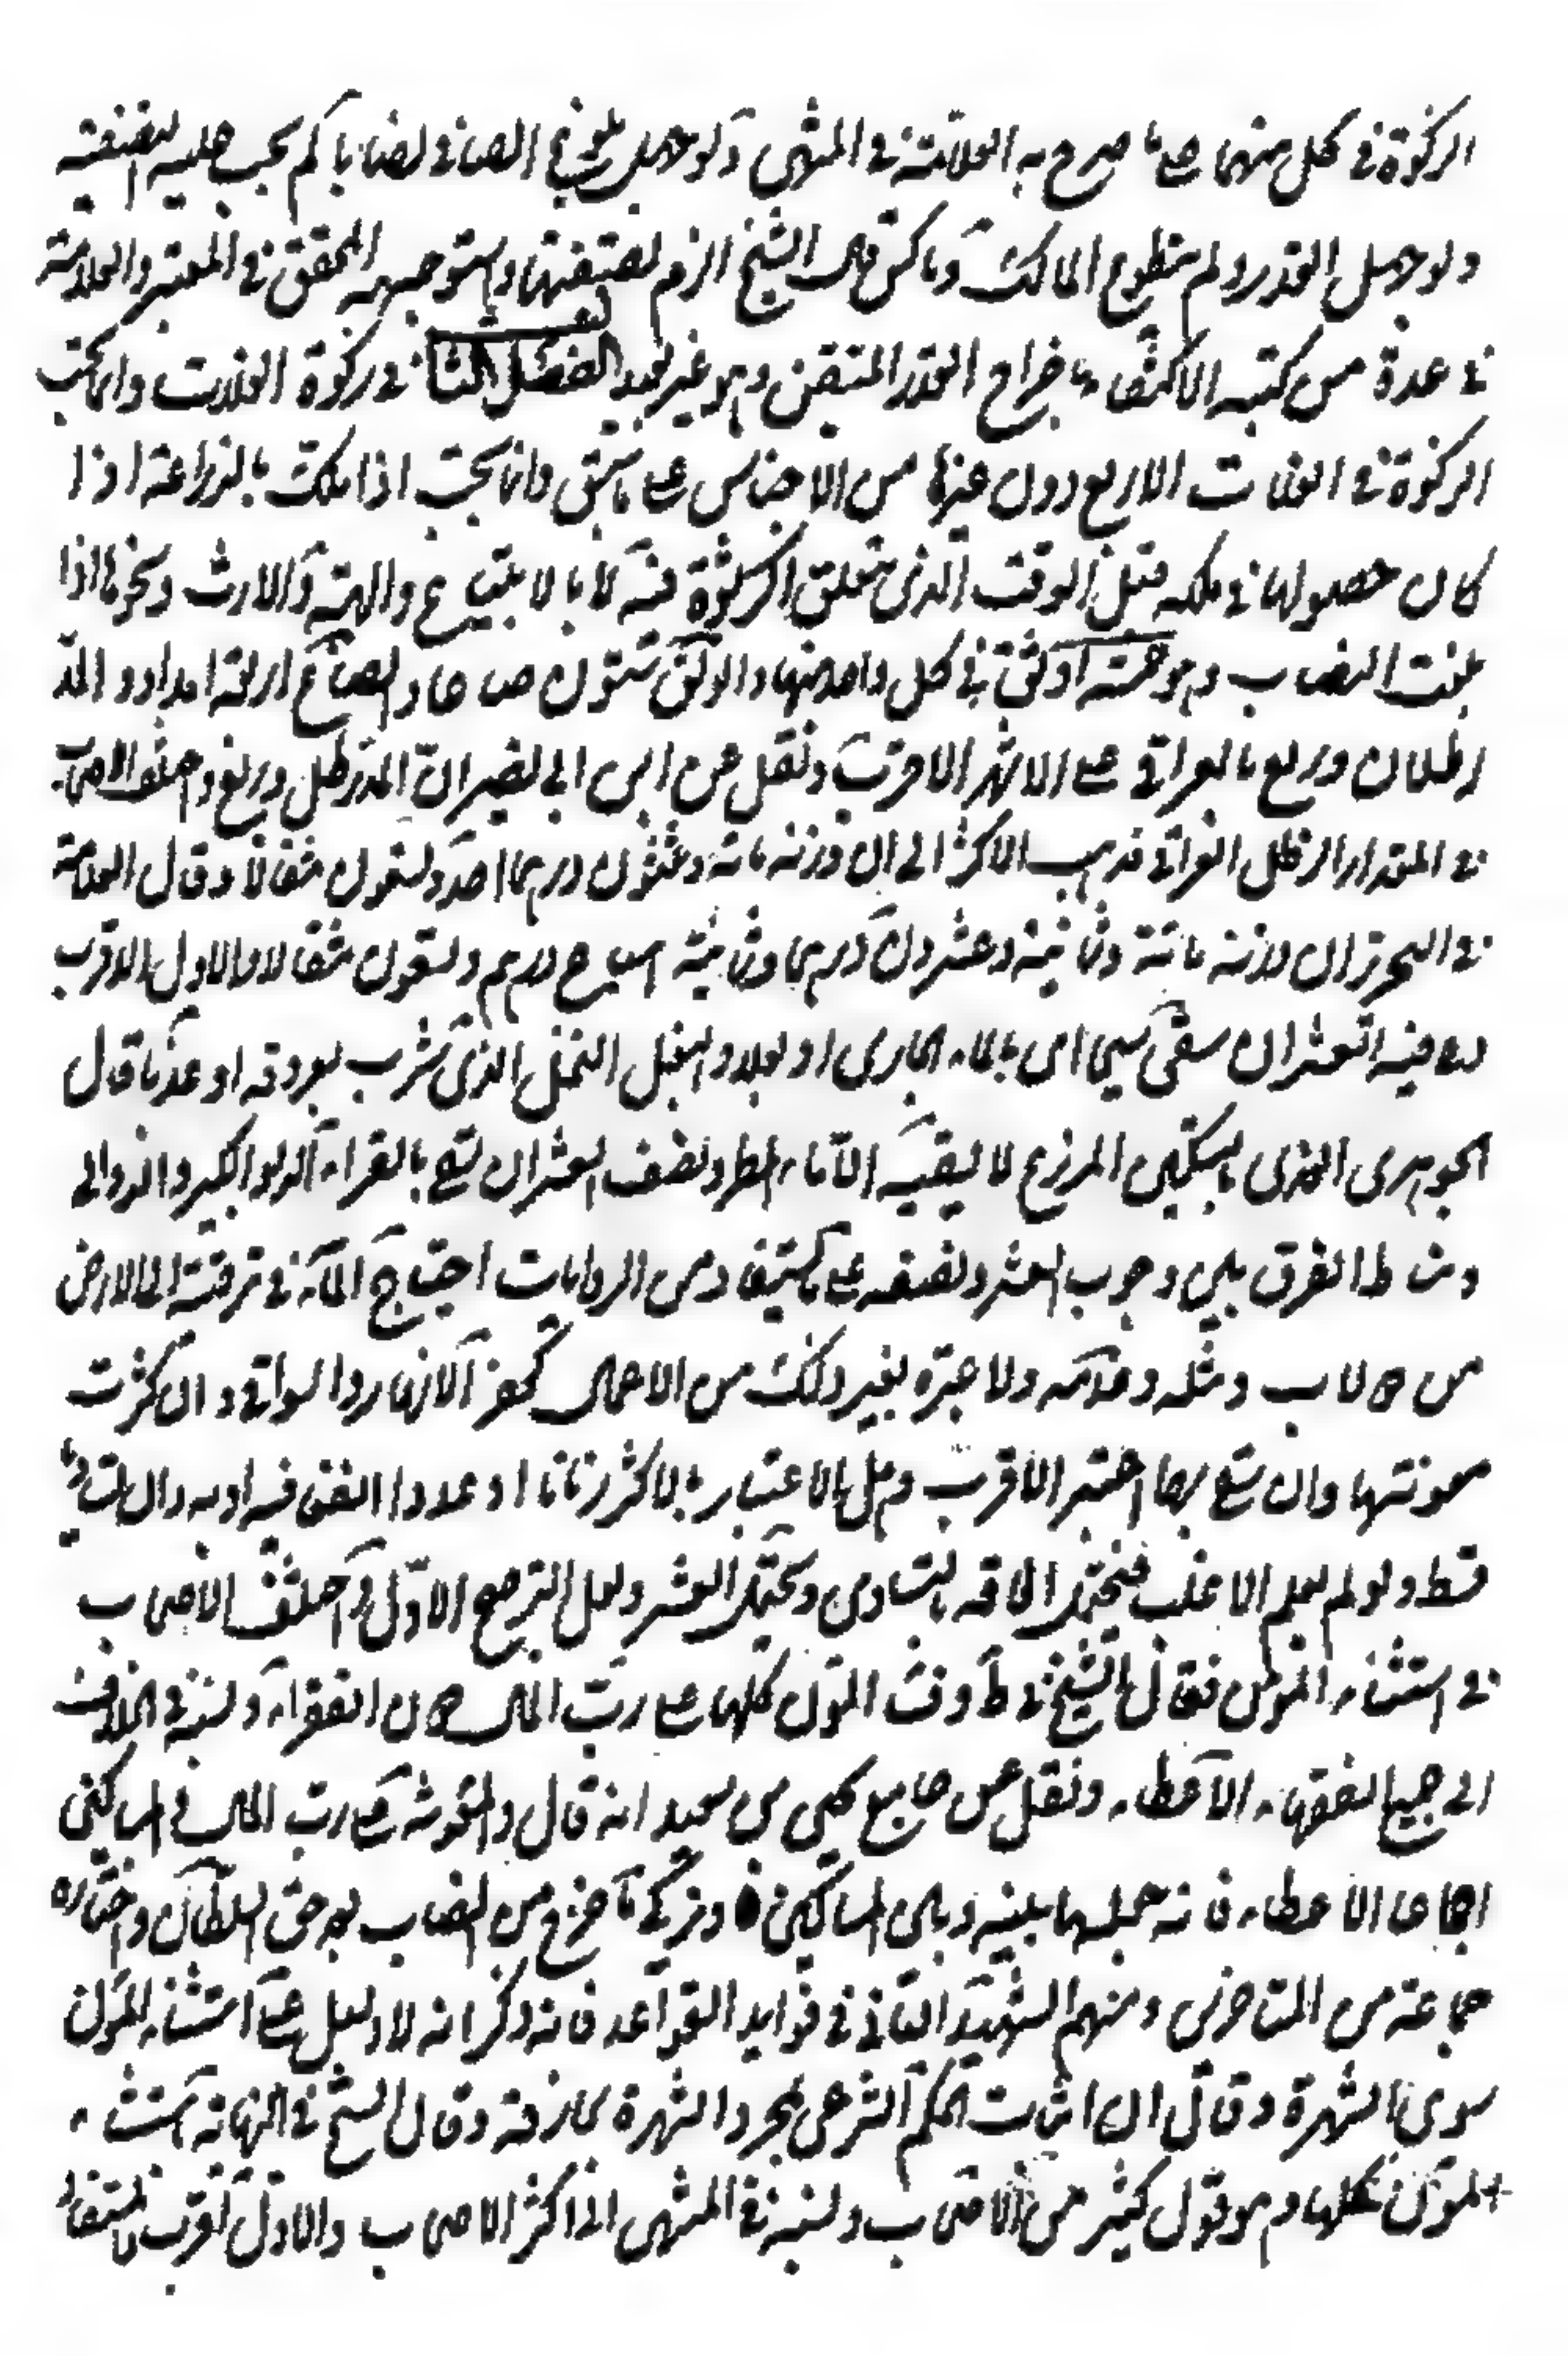 الزكوة في كل منهما على ما صرح به العلامة في المنتهى ولو جهل بلوغ الصافي نصابا لم يجب عليه التصفية
ولو جهل القدر ولم يتطوع المالك وماكس قال الشيخ الزم تصفيتها واستوجهه المحقق في المعتبر والعلامة
في عدة من كتبه الاكتفاء باخراج القدر المتيقن وهو غير بعيد الفصل الثالث في زكوة الغلات وانما تجب
الزكوة في الغلات الاربع دون غيرها من الاجناس على ما سبق وانما تجب اذا ملكت بالزراعة اذا
كان حصولها في ملكه قبل الوقت الذي يتعلق الزكوة فيه لا بالابتياع والهبة والارث ونحوها اذا
بلغت النصاب وهو خمسة اوسق في كل واحد منها والوسق ستون صاعا والصاع اربعة امداد والمد
رطلان وربع بالعراقي على الاشهر الاقرب ونقل عن ابن ابي نصر ان المد رطل وربع واختلف الاصحاب
في المقدار الرطل العراقي فذهب الاكثر الى ان وزنه مائة وثلثون درهما احد وتسعون مثقالا وقال العلامة
في التحرير ان وزنه مائة وثمانية وعشرون درهما وثمانية اسباع درهم وتسعون مثقالا والاول الاقرب
فيه العشر ان سقى سيحا اى بالماء الجارى او بعلا والبعل النخل الذى يشرب بعروقه او عذيا قال
الجوهرى العذى بالتسكين الزرع لا يسقيه الا ماء المطر ونصف العشر ان سقى بالغرب او الدلو الكبير والدوالى
ومناط الفرق بين وجوب العشر ونصفه على ما يستفاد من الروايات احتياج الماء في ترقيته الى الارض
من دولاب ومثله وعدمه ولا عبرة بغير ذلك من الاعمال كحفر الانهار والسواقى وان كثرت
مؤنتها وان سقى بهما اعتبر الاقرب وهل الاعتبار بالاكثر زمانا او عددا النفى فيه او به وان تساويا
قسط ولو لم يعلم الاغلب فيحتمل الحاقه بالتساوى ويحتمل العشر ولعل الترجيح الاول واختلف الاصحاب
في استثناء المؤن فقال الشيخ في ط وف المؤن كلها على رب المال دون الفقراء ونسبه في الخلاف
الى جميع الفقهاء الا عطاء ونقل عن جامع يحيى بن سعيد انه قال والمؤنة على رب المال دون المساكين
اجماعا الا عطاء فانه جعلها بينه وبين المساكين ويزكى ما خرج من النصاب بعد حق السلطان واختاره
جماعة من المتاخرين ومنهم الشهيد الثانى في فوايد القواعد فانه ذكر انه لا دليل على استثناء المؤن
سوى الشهرة وقال ان اثبات الحكم الشرعى بمجرد الشهرة مجازفة وقال الشيخ في النهاية باستثناء
المؤن كلها وهو قول كثير من الاصحاب ونسبه في المنتهى الى اكثر الاصحاب والاول اقرب